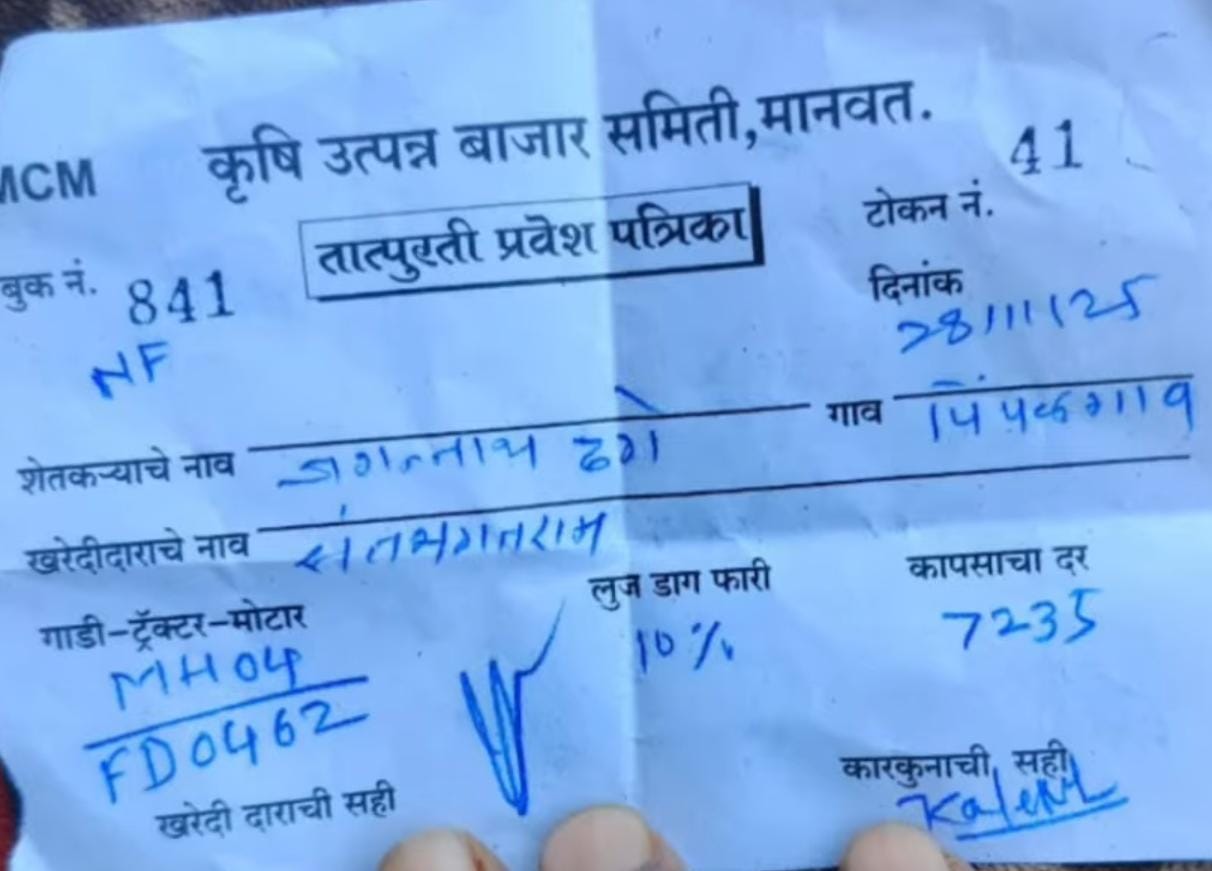 MCM कृषि उत्पन्न बाजार समिती, मानवत.
41
तात्पुरती प्रवेश पत्रिका
टोकन नं.
बुक नं. 841
दिनांक
28/11/25
NF
शेतकऱ्याचे नाव जगन्नाथ ढगे गाव पिंपळगाव
खरेदीदाराचे नाव संतभगतराम
गाडी-ट्रॅक्टर-मोटार
लुज डाग फारी
कापसाचा दर
MH04
10%
7235
FD0462
खरेदी दाराची सही
कारकुनाची सही